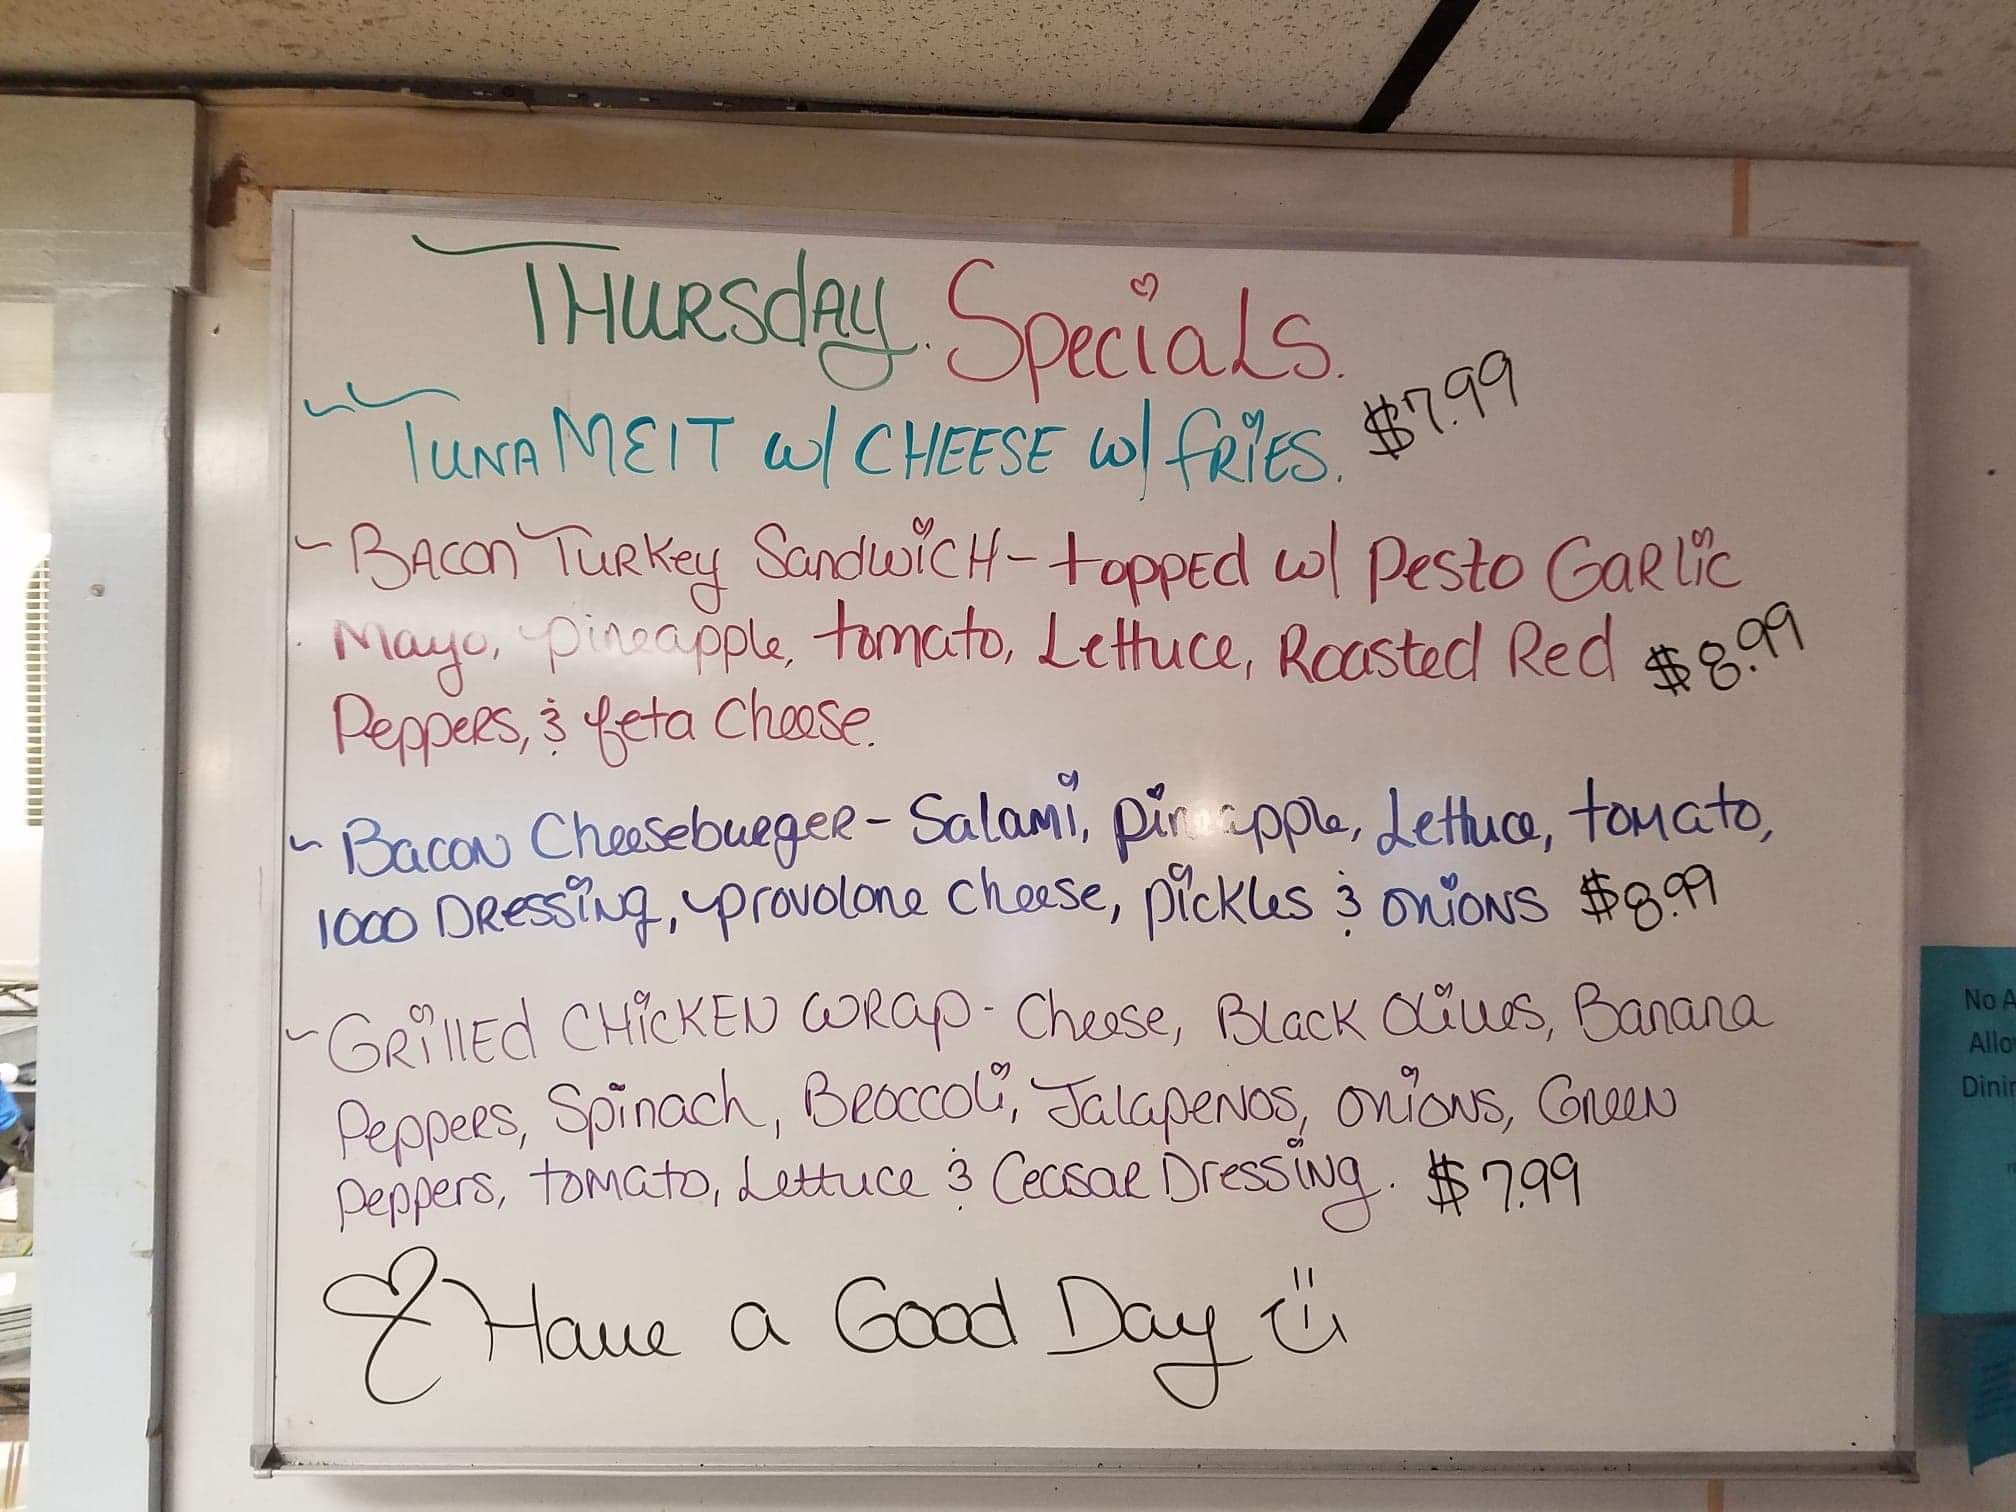 THURSdAY. SpeciaLS.
TUNA MElT w/ CHEESE w/ fRiES. $7.99
~ BAcon TuRkey SandwicH - topped w/ Pesto GaRlic
Mayo, pineapple, tomato, Lettuce, Roasted Red $8.99
Peppers, & feta Cheese.
~ Bacon Cheeseburger - Salami, pineapple, Lettuce, tomato,
1000 DRessing, provolone cheese, pickles & onions $8.99
~ GRillEd CHicKEN WRap - Cheese, Black Olives, Banana
Peppers, Spinach, Broccoli, Jalapenos, onions, Green
peppers, tomato, Lettuce & Ceasar Dressing. $7.99
Have a Good Day
No A
Allo
Dini